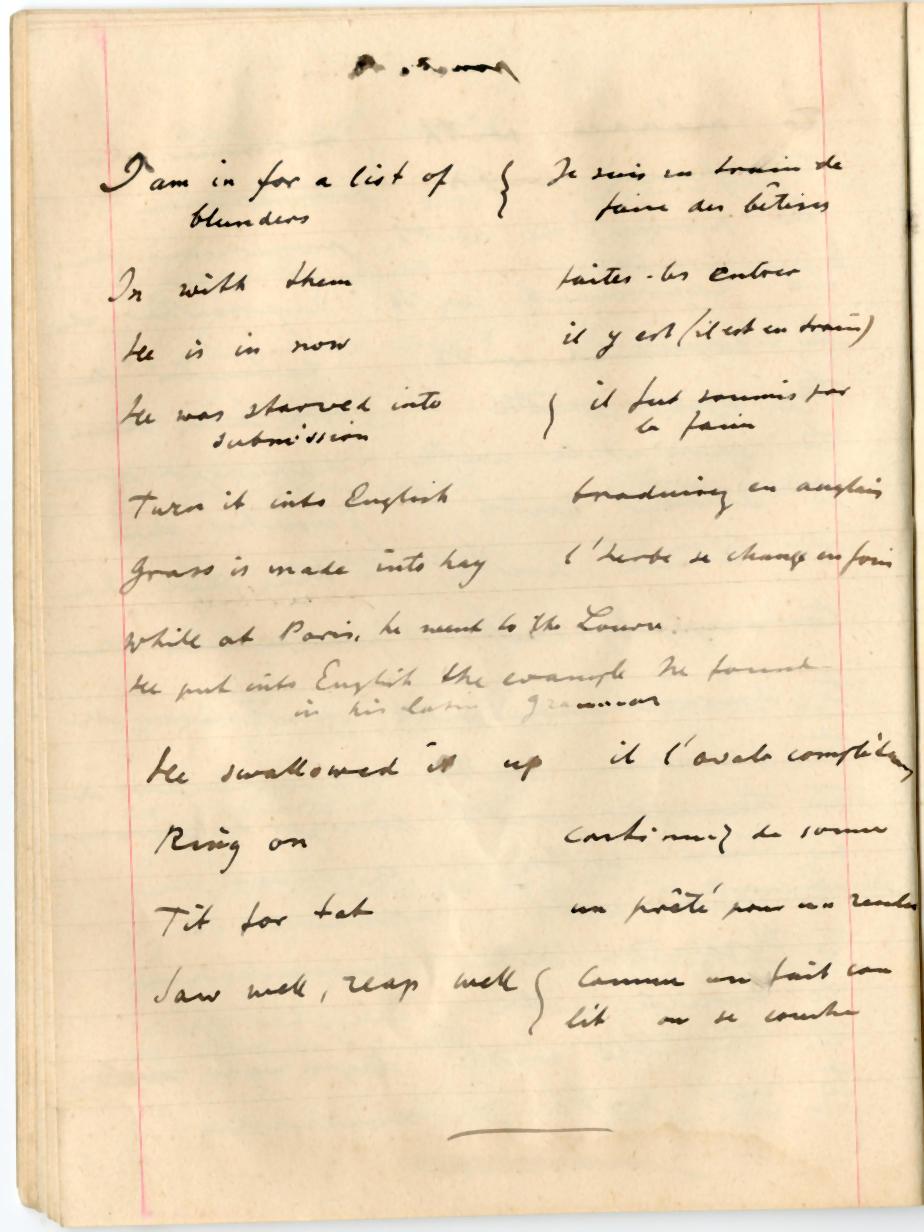 I am in for a list of { Je suis en train de
blunders faire des bêtises
In with them faites-les entrer
He is in now il y est (il est en train)
He was starved into { il fut soumis par
submission la faim
Turn it into English traduisez en anglais
Grass is made into hay l'herbe se change en foin
While at Paris, he went to the Louvre.
He put into English the example he found
in his latin grammar
He swallowed it up il l'avala
Ring on continuez de sonner
Tit for tat un prêté pour un rendu
Saw well, reap well { Comme on fait son
lit on se couche